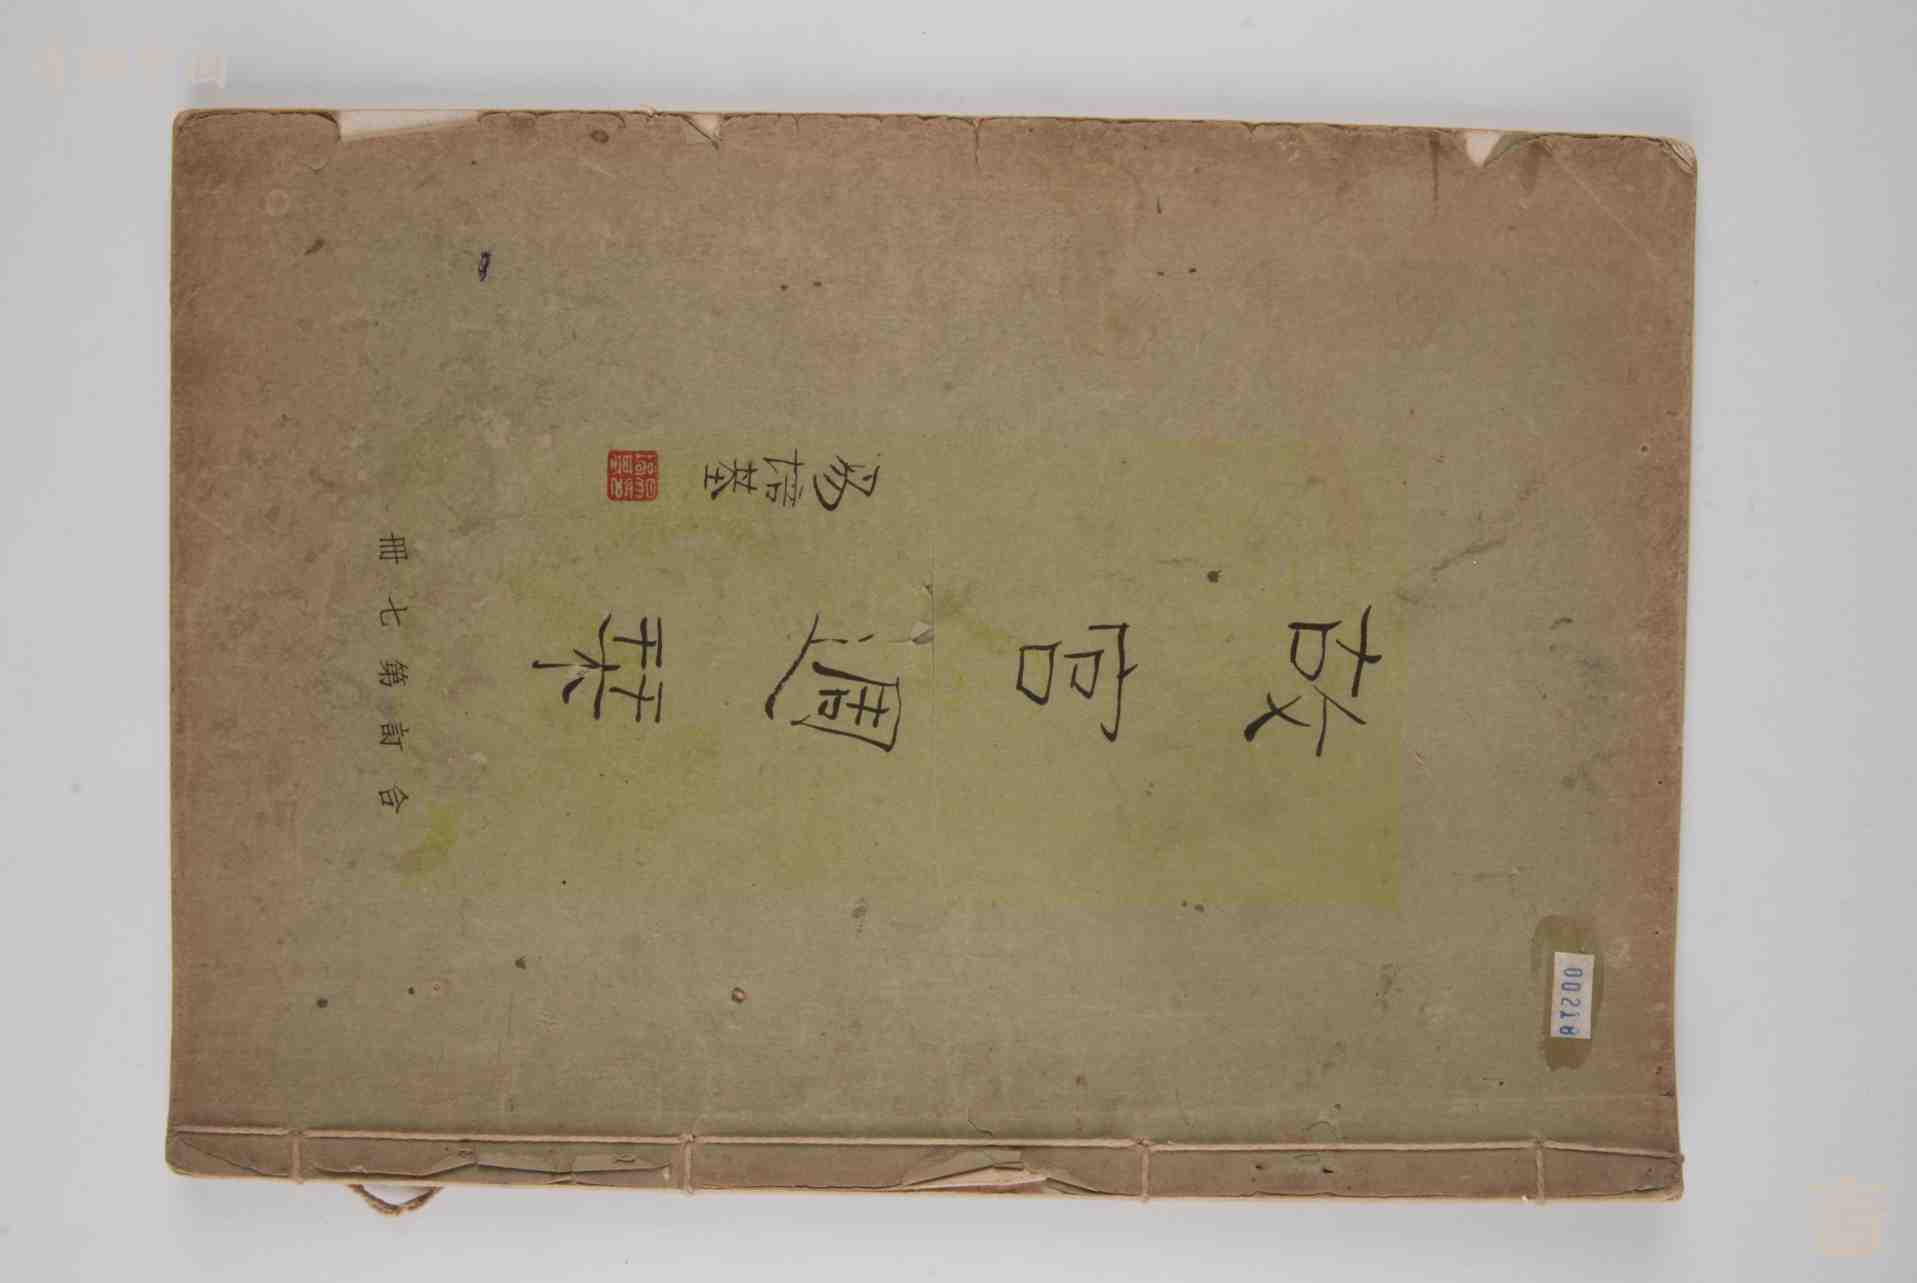 故宮週栞
易培基
合訂第七冊
00218